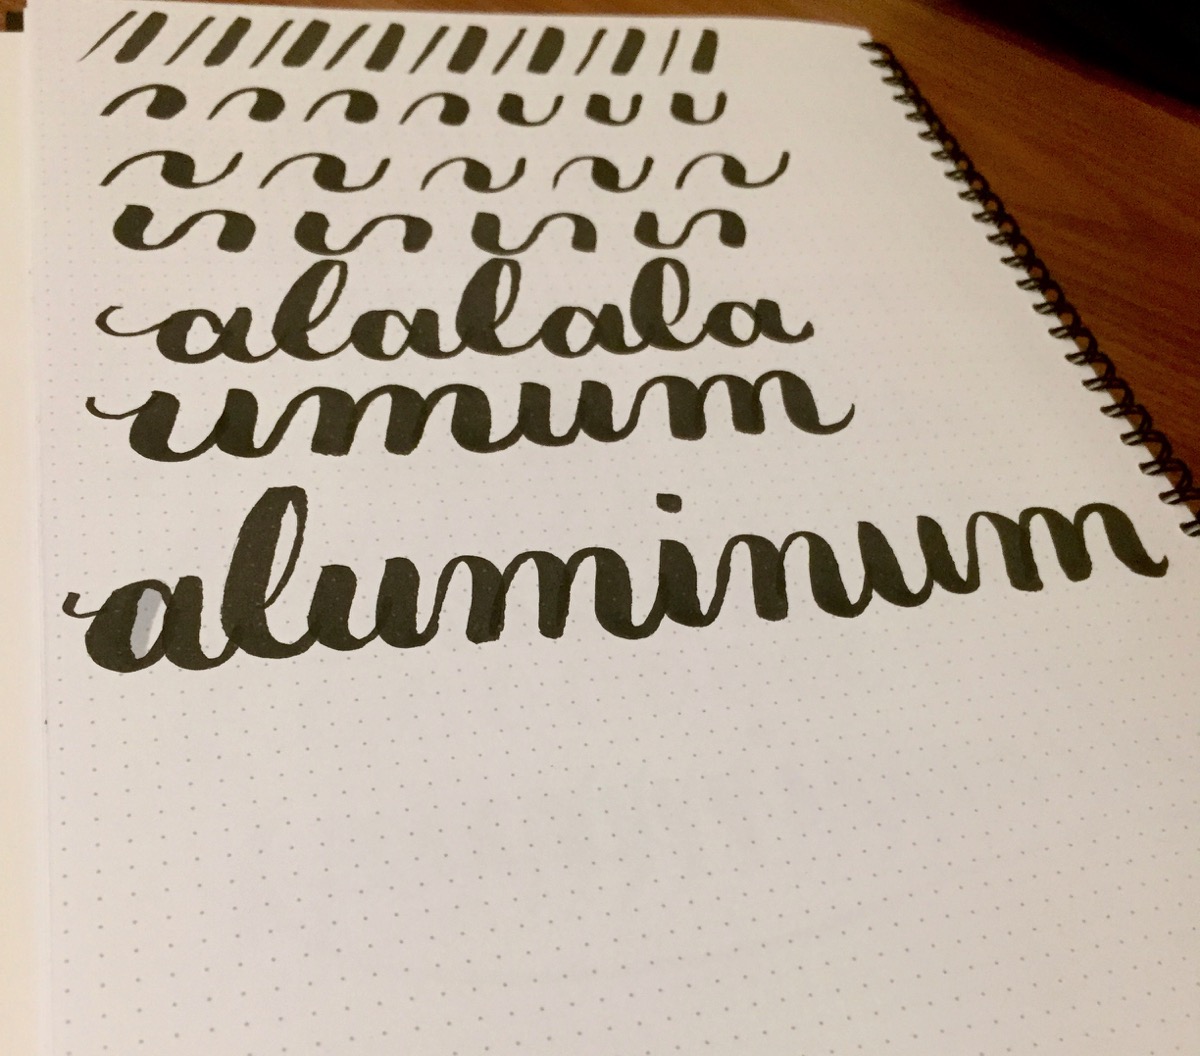 alalala
umum
aluminum